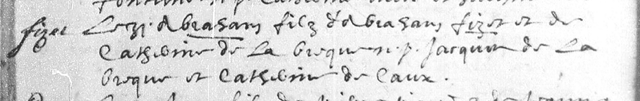 fizet Le 31 Abraham filz d'Abraham fizet et de
Catherine de La Brequen. p. Jacques de La
Breque et Catherine de Caux.